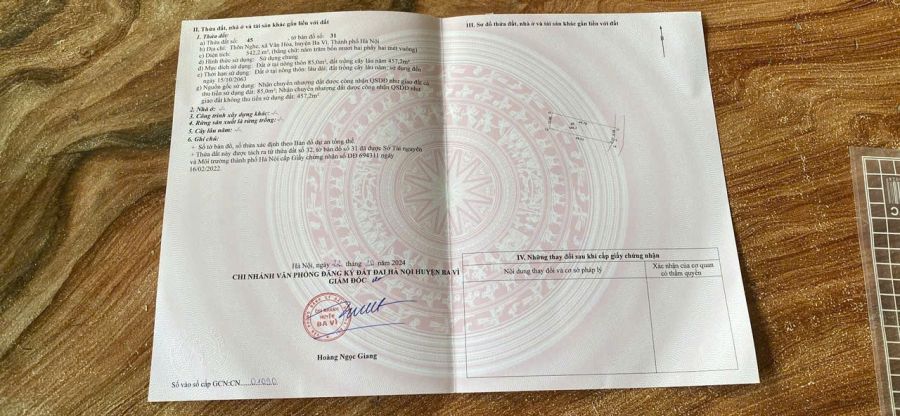 II. Thửa đất, nhà ở và tài sản khác gắn liền với đất
1. Thửa đất:
a) Thửa đất số: 45 , tờ bản đồ số: 31
b) Địa chỉ: Thôn Nghe, xã Vân Hòa, huyện Ba Vì, Thành phố Hà Nội
c) Diện tích: 542,2 m², (bằng chữ: năm trăm bốn mươi hai phẩy hai mét vuông)
d) Hình thức sử dụng: Sử dụng chung
đ) Mục đích sử dụng: Đất ở tại nông thôn 85,0m²; đất trồng cây lâu năm 457,2m²
e) Thời hạn sử dụng: Đất ở tại nông thôn: lâu dài; đất trồng cây lâu năm: sử dụng đến
ngày 15/10/2063
g) Nguồn gốc sử dụng: Nhận chuyển nhượng đất được công nhận QSDĐ như giao đất có
thu tiền sử dụng đất: 85,0m²; Nhận chuyển nhượng đất được công nhận QSDĐ như
giao đất không thu tiền sử dụng đất: 457,2m²
2. Nhà ở: -/-
3. Công trình xây dựng khác: -/-
4. Rừng sản xuất là rừng trồng: -/-
5. Cây lâu năm: -/-
6. Ghi chú:
- Số tờ bản đồ, số thửa xác định theo Bản đồ dự án tổng thể.
+ Thửa đất này được tách ra từ thửa đất số 32, tờ bản đồ số 31 đã được Sở Tài nguyên
và Môi trường thành phố Hà Nội cấp Giấy chứng nhận số DĐ 694311 ngày
16/02/2022.
Hà Nội, ngày 22 tháng 10 năm 2024
CHI NHÁNH VĂN PHÒNG ĐĂNG KÝ ĐẤT ĐAI HÀ NỘI HUYỆN BA VÌ
GIÁM ĐỐC
CHI NHÁNH
HUYỆN
BA VÌ
Hoàng Ngọc Giang
Số vào sổ cấp GCN:CN.....01090
III. Sơ đồ thửa đất, nhà ở và tài sản khác gắn liền với đất
IV. Những thay đổi sau khi cấp giấy chứng nhận
Nội dung thay đổi và cơ sở pháp lý
Xác nhận của cơ quan
có thẩm quyền